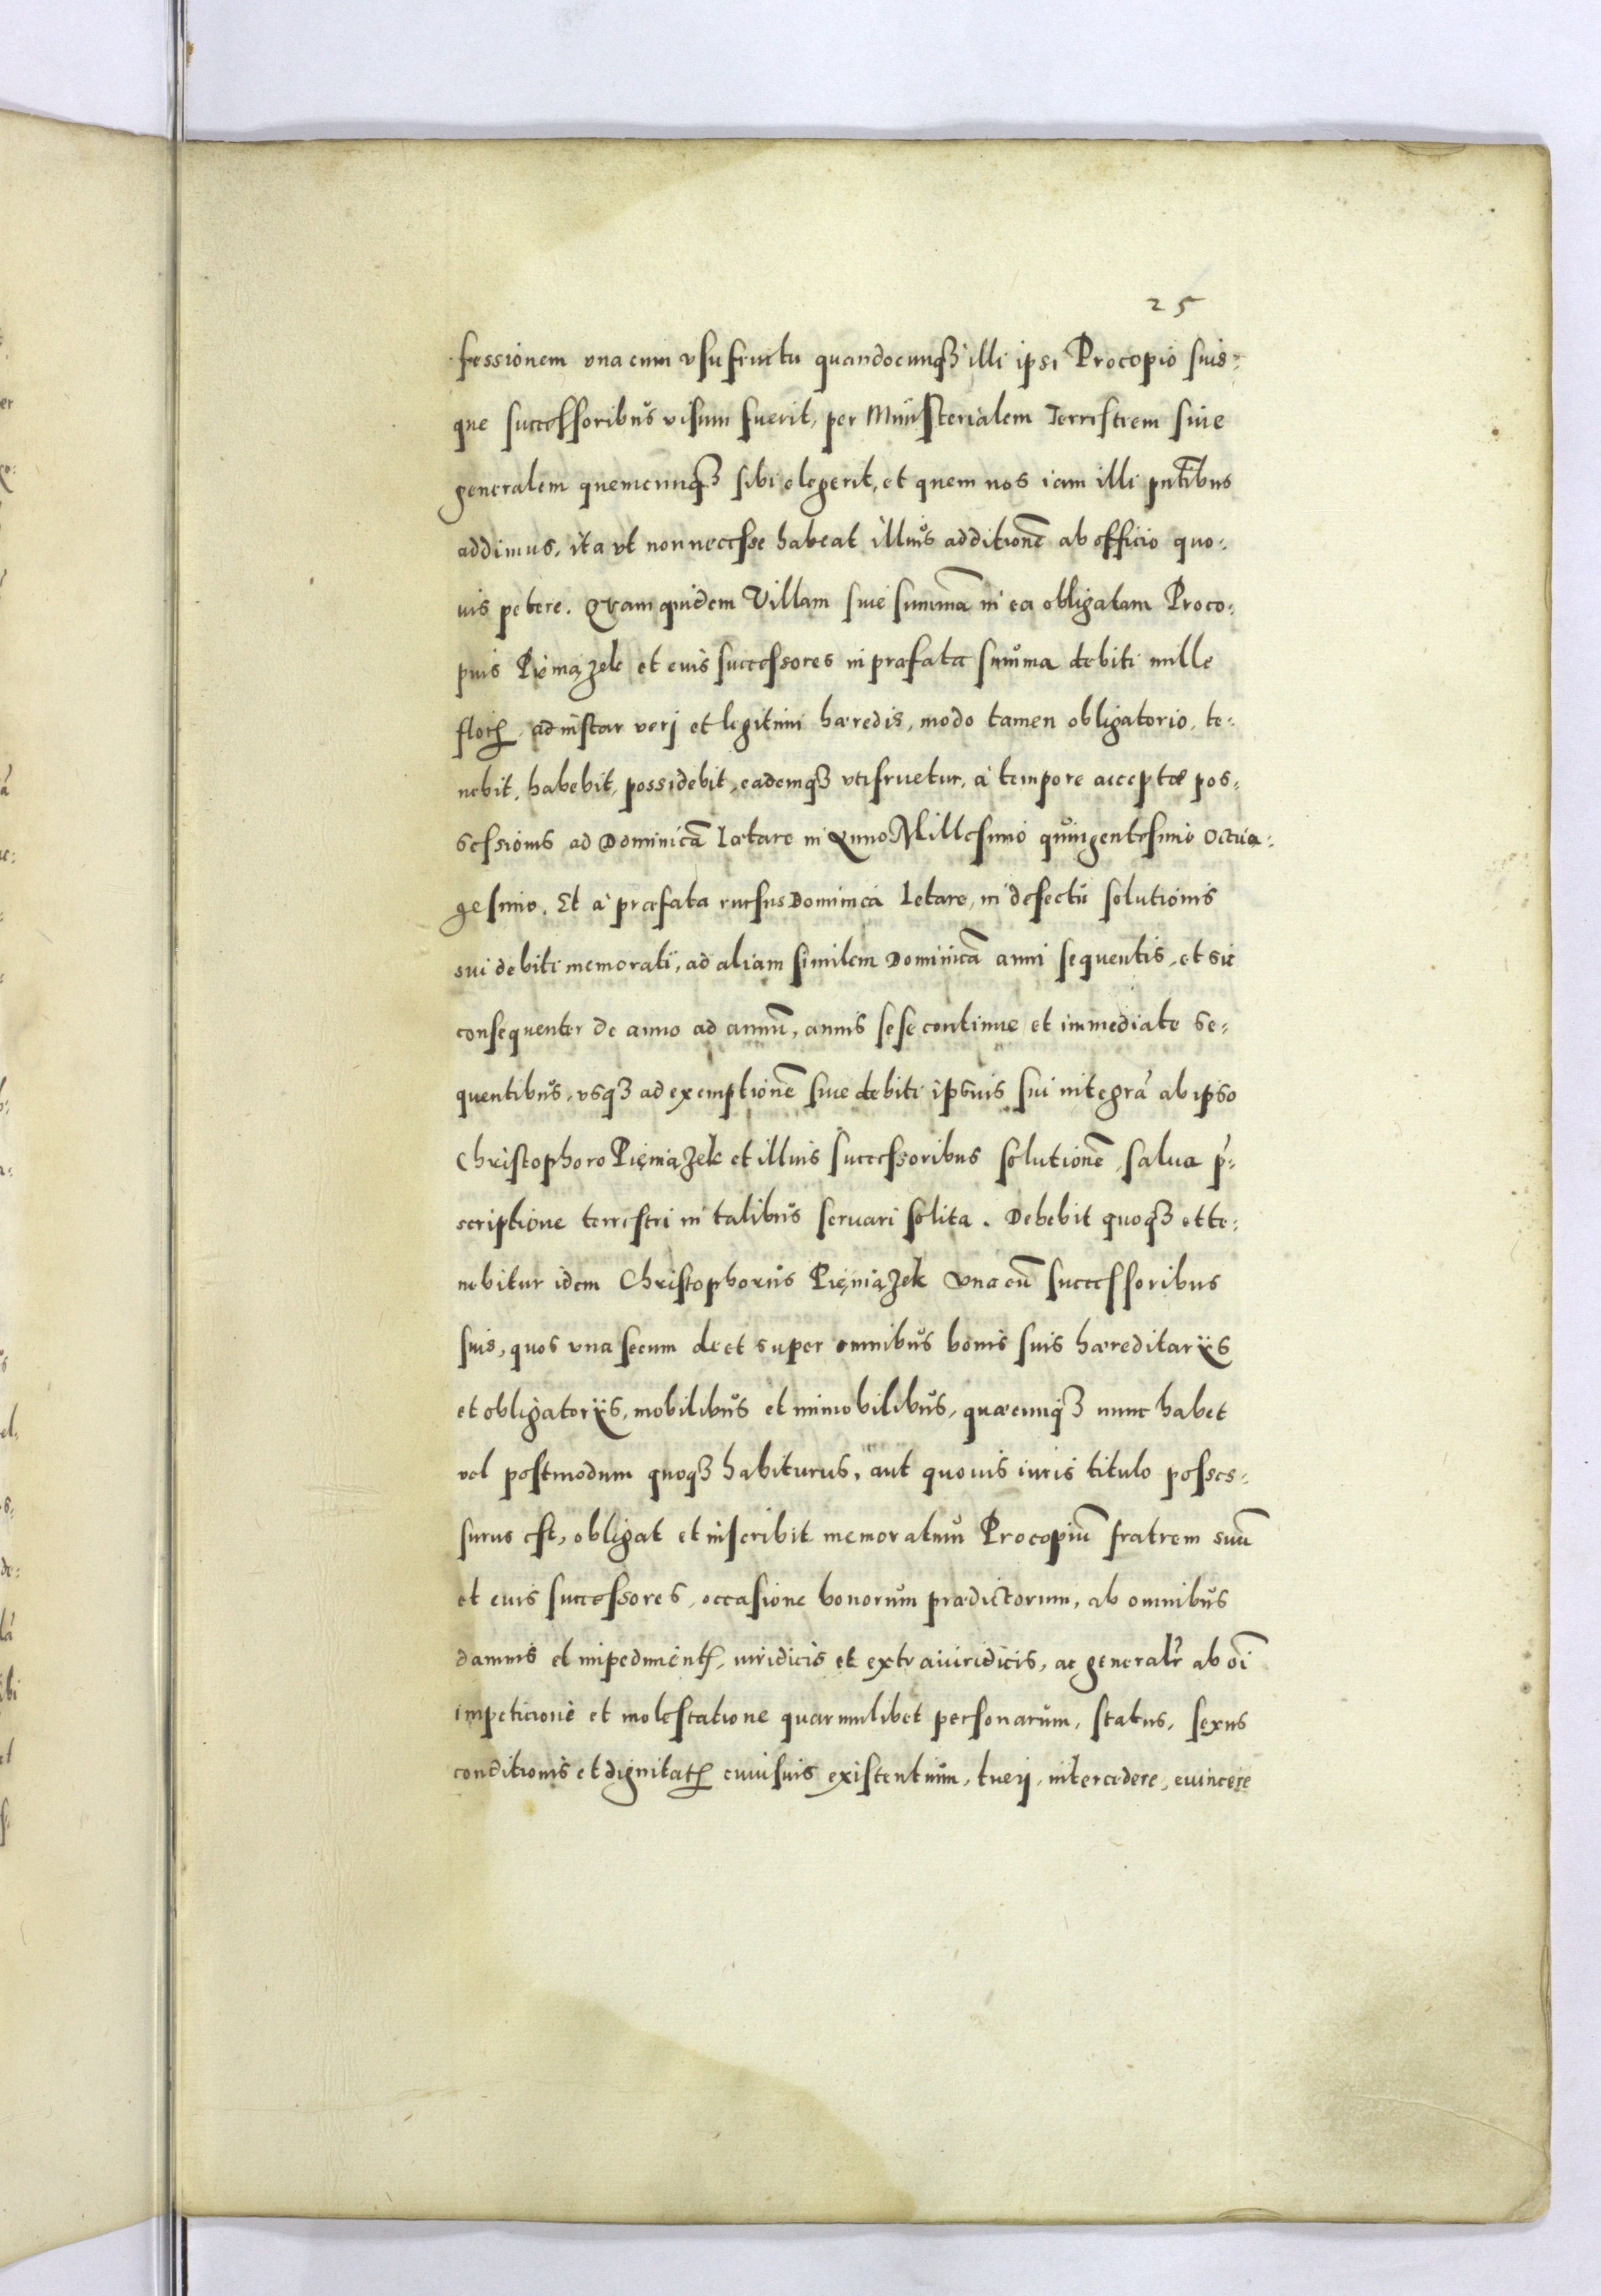 25
sessionem vna cum vsufructu quandocunq3 illi ipsi Procopio suis=
que successoribus visum fuerit, per Ministerialem Terrestrem siue
generalem quemcunq3 sibi elegerit, et quem nos iam illi pn̄tibus
addimus, ita vt non necesse habeat illius additionē ab officio quo=
uis petere. Quam quidem Villam siue summā in ea obligatam Proco=
pius Pieniążek et eius successores in præfata summa debiti mille
floŗ, ad instar veri et legitimi hæredis, modo tamen obligatorio, te=
nebit, habebit, possidebit, eademq3 vtifruetur, à tempore acceptæ pos=
sessionis ad Dominicā lætare in Anno Millesimo quingentesimo Octua=
gesimo. Et à præfata rursus Dominica letare, in defectū solutionis
sui debiti memorati, ad aliam similem Dominicā anni sequentis, et sic
consequenter de anno ad annū, annis sese continue et immediate se=
quentibus, vsq3 ad exemptionē siue debiti ipsius sui integrā ab ipso
Christophoro Pieniążek et illius successoribus solutionē, salua p̄=
scriptione terrestri in talibus seruari solita. Debebit quoq3 et te=
nebitur idem Christophorus Pięniążek vna cū successoribus
suis, quos vna secum de et super omnibus bonis suis hæreditarijs
et obligatorijs, mobilibus et immobilibus, quæcunq3 nunc habet
vel postmodum quoq3 habiturus, aut quouis iuris titulo posses=
surus est, obligat et inscribit memoratum Procopiū fratrem suū
et eius successores, occasione bonorum prædictorum, ab omnibus
damnis et impedimentꝭ, iuridicis et extraiuridicis, ac generalr̄ ab oī
impeticione et molestatione quarumlibet personarum, status, sexus
conditionis et dignitatꝭ cuiusuis existentium, tueri, intercedere, euincere